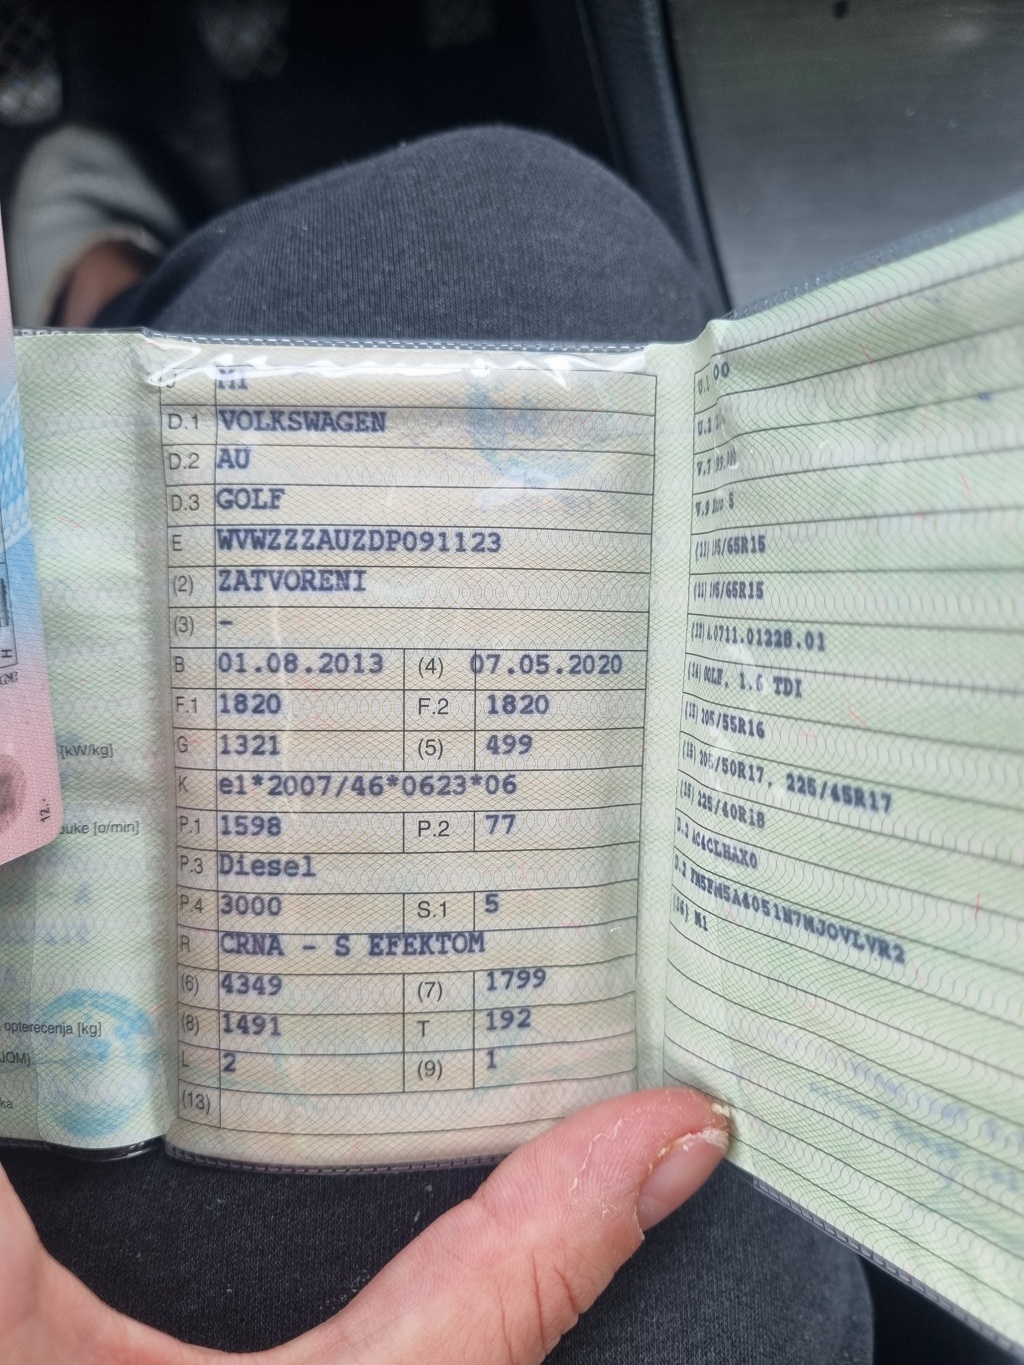 [kW/kg]
buke [o/min]
opterećenja [kg]
JOM)
ka
12.
H
J M1
D.1 VOLKSWAGEN
D.2 AU
D.3 GOLF
E WVWZZZAUZDP091123
(2) ZATVORENI
(3) -
B 01.08.2013 (4) 07.05.2020
F.1 1820 F.2 1820
G 1321 (5) 499
K e1*2007/46*0623*06
P.1 1598 P.2 77
P.3 Diesel
P.4 3000 S.1 5
R CRNA - S EFEKTOM
(6) 4349 (7) 1799
(8) 1491 T 192
L 2 (9) 1
(13)
U.1 00
U.2
V.7
V.9 Euro 5
(11) 195/65R15
(11) 195/65R15
(12) A.0711.01228.01
(14) GOLF, 1.6 TDI
(15) 205/55R16
(15) 205/50R17, 225/45R17
(15) 225/40R18
D.2 ACACLHAX0
D.2 FM5FM5A4051N7MJOVLVR2
(16) M1